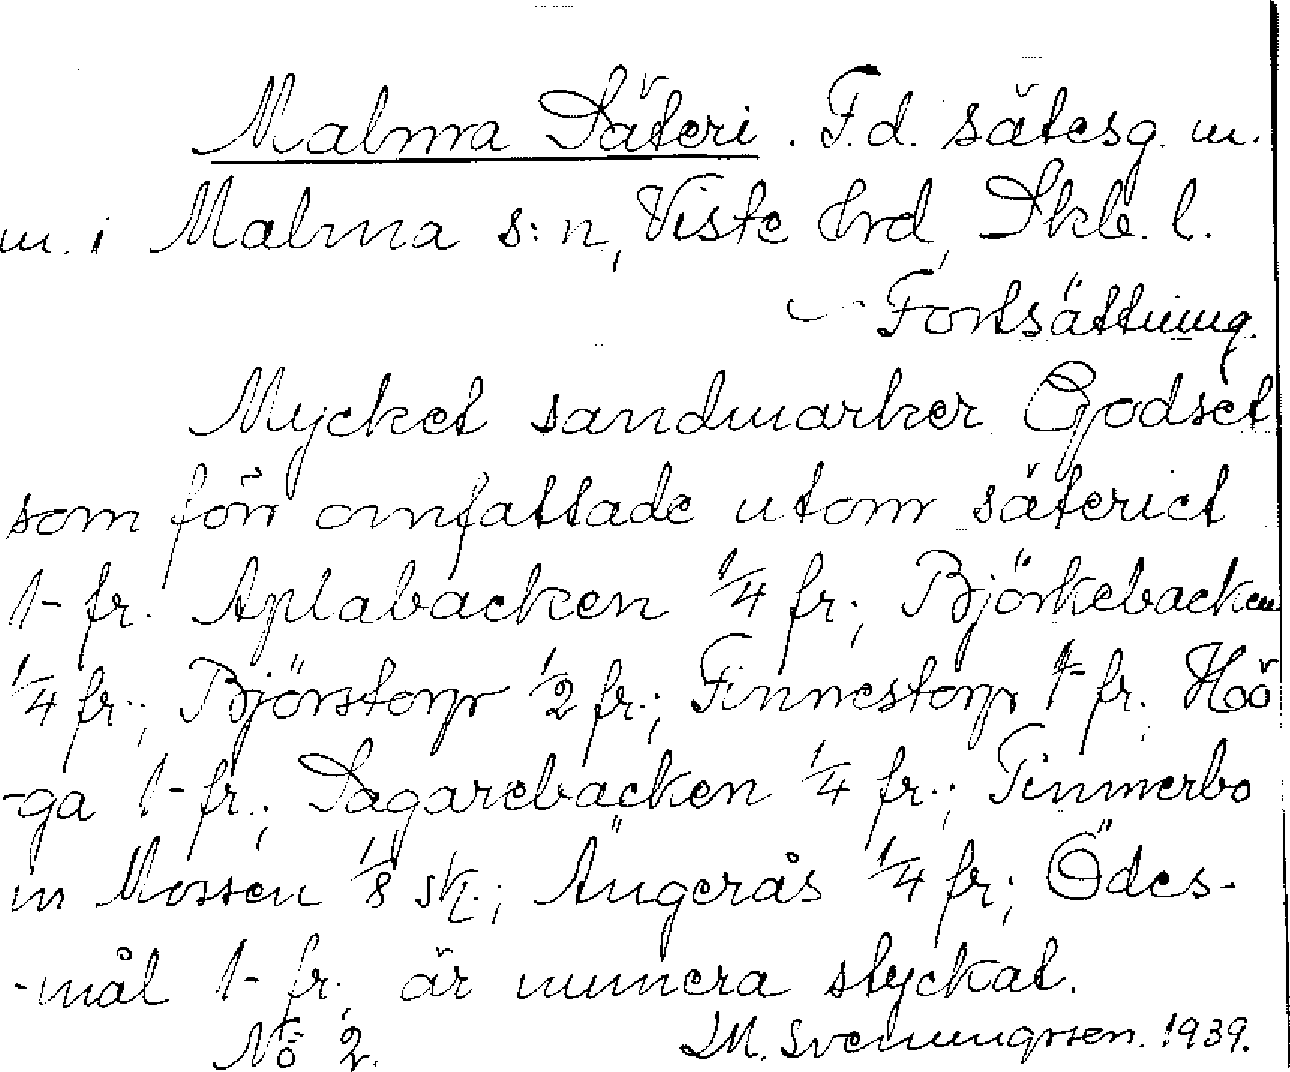 Malma Säteri. F.d. sätesg. m.
m. i Malma s:n, Viste hrd, Skb. l.
Fortsättning.
Mycket sandmarker Godset
som förr omfattade utom säteriet
1- fr. Aplabacken 1/4 fr.; Björkebacken
1/4 fr.; Björstorp 1/2 fr.; Finnestorp 1- fr. Höö
-ga 1- fr.; Sagarebacken 1/4 fr.; Timmerbo
m Mossen 1/8 sk.; Ängerås 1/4 fr.; Ödes-
-mål 1- fr. är numera styckat.
No 2. I.M. Svenungsson. 1939.